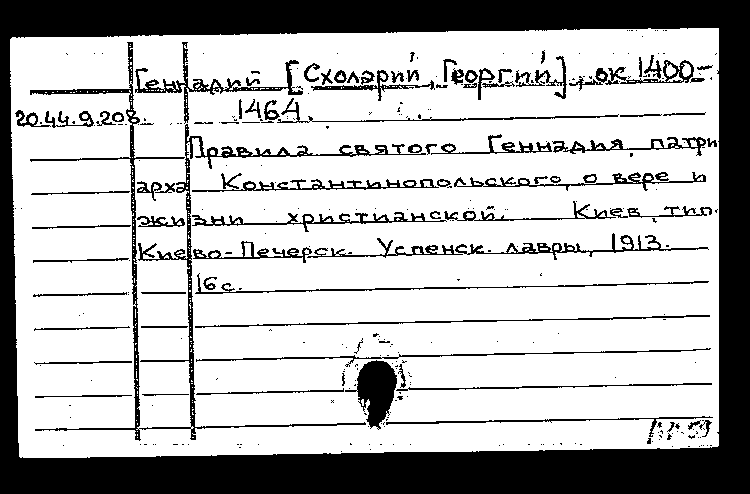 Геннадий [Схоларий, Георгий], ок 1400-
20.44.9.208. 1464.
Правила святого Геннадия, патри
арха Константинопольского, о вере и
жизни христианской. Киев, тип.
Киево-Печерск. Успенск. лавры, 1913.
16 с.